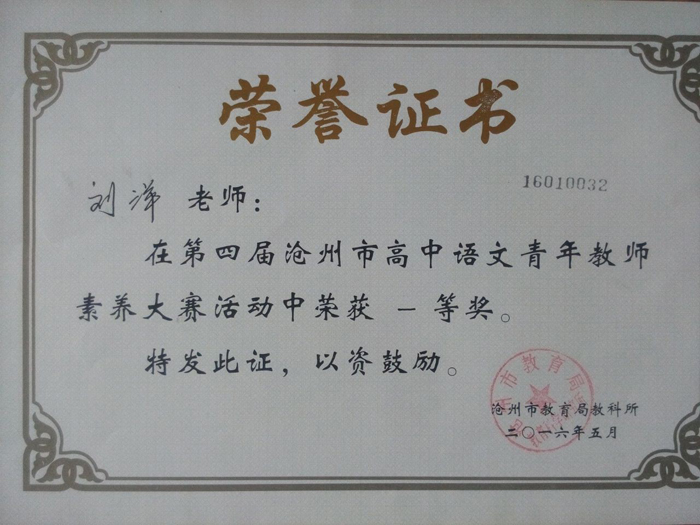 荣誉证书
16010032
刘洋 老师：
在第四届沧州市高中语文青年教师
素养大赛活动中荣获 一等奖。
特发此证，以资鼓励。
沧州市教育局教科所
二〇一六年五月